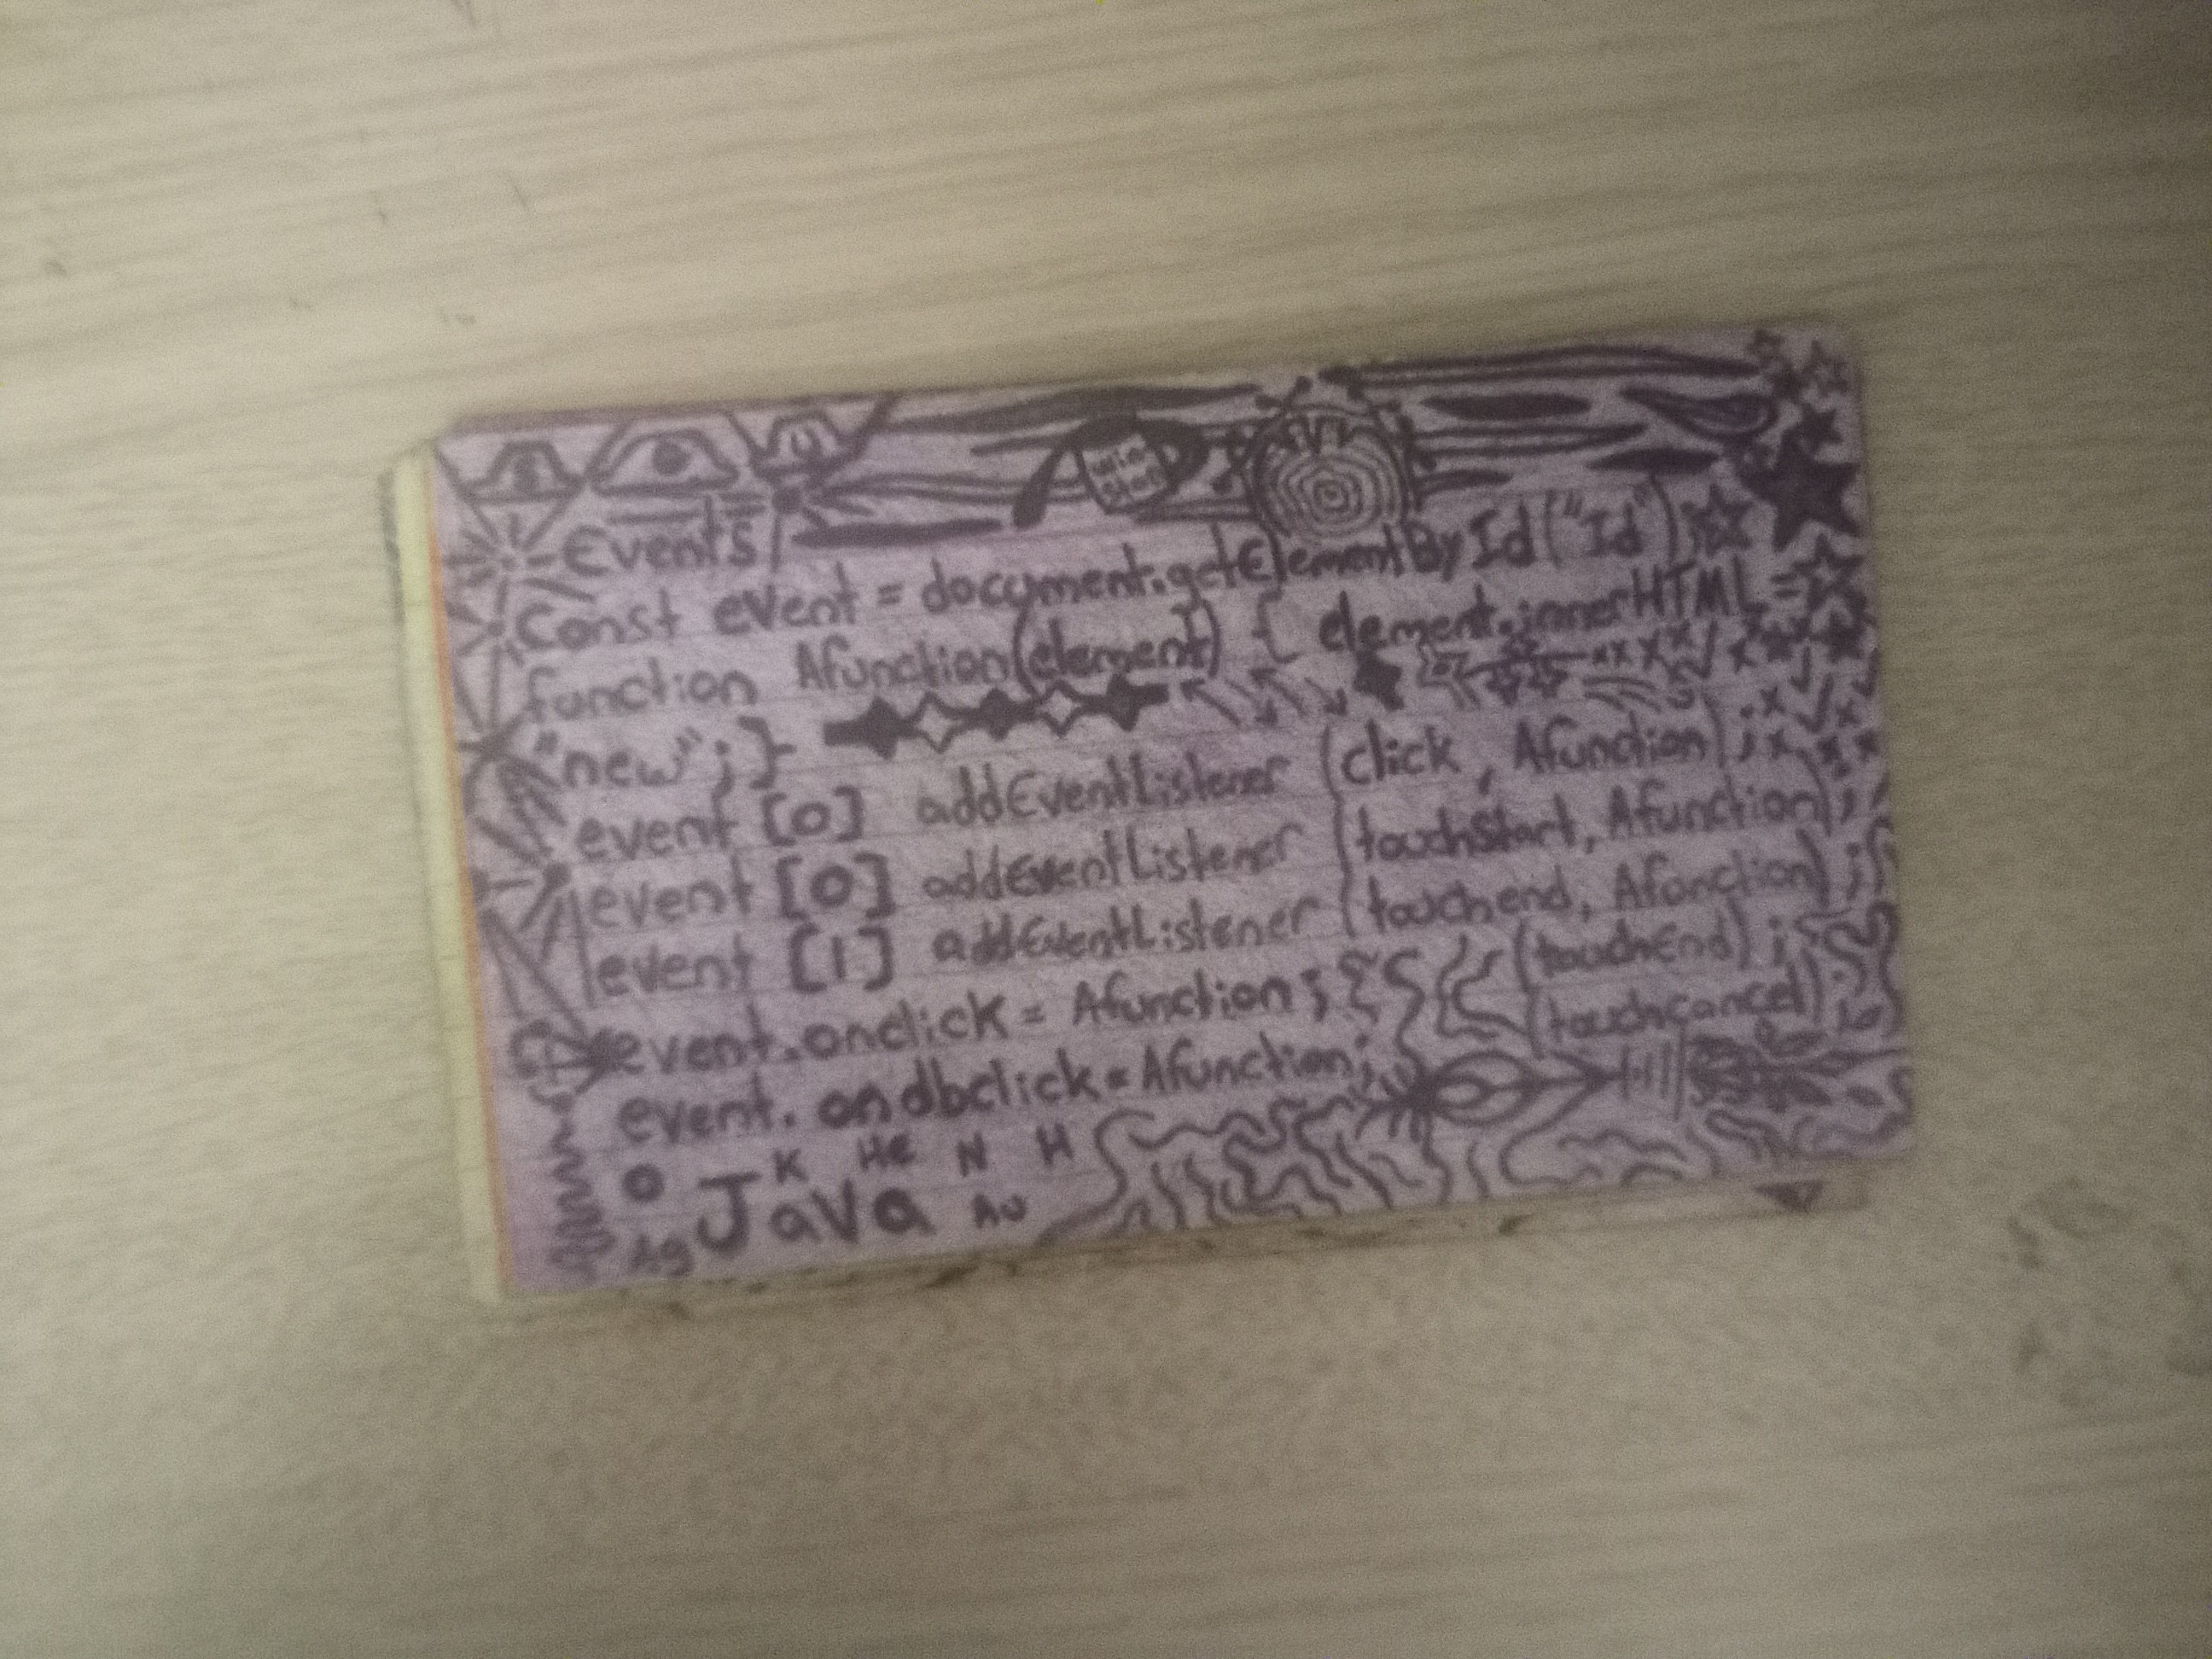 Events
Const event = document.getElementById("Id");
function Afunction(element) { element.innerHTML =
"new";}
event [0] addEventListener (click, Afunction);
event [0] addEventListener (touchStart, Afunction);
event [1] addEventListener (touchend, Afunction);
event.onclick = Afunction; (touchEnd);
event.ondbclick = Afunction; (touchcancel);
K He N H
O Java Au
Ag